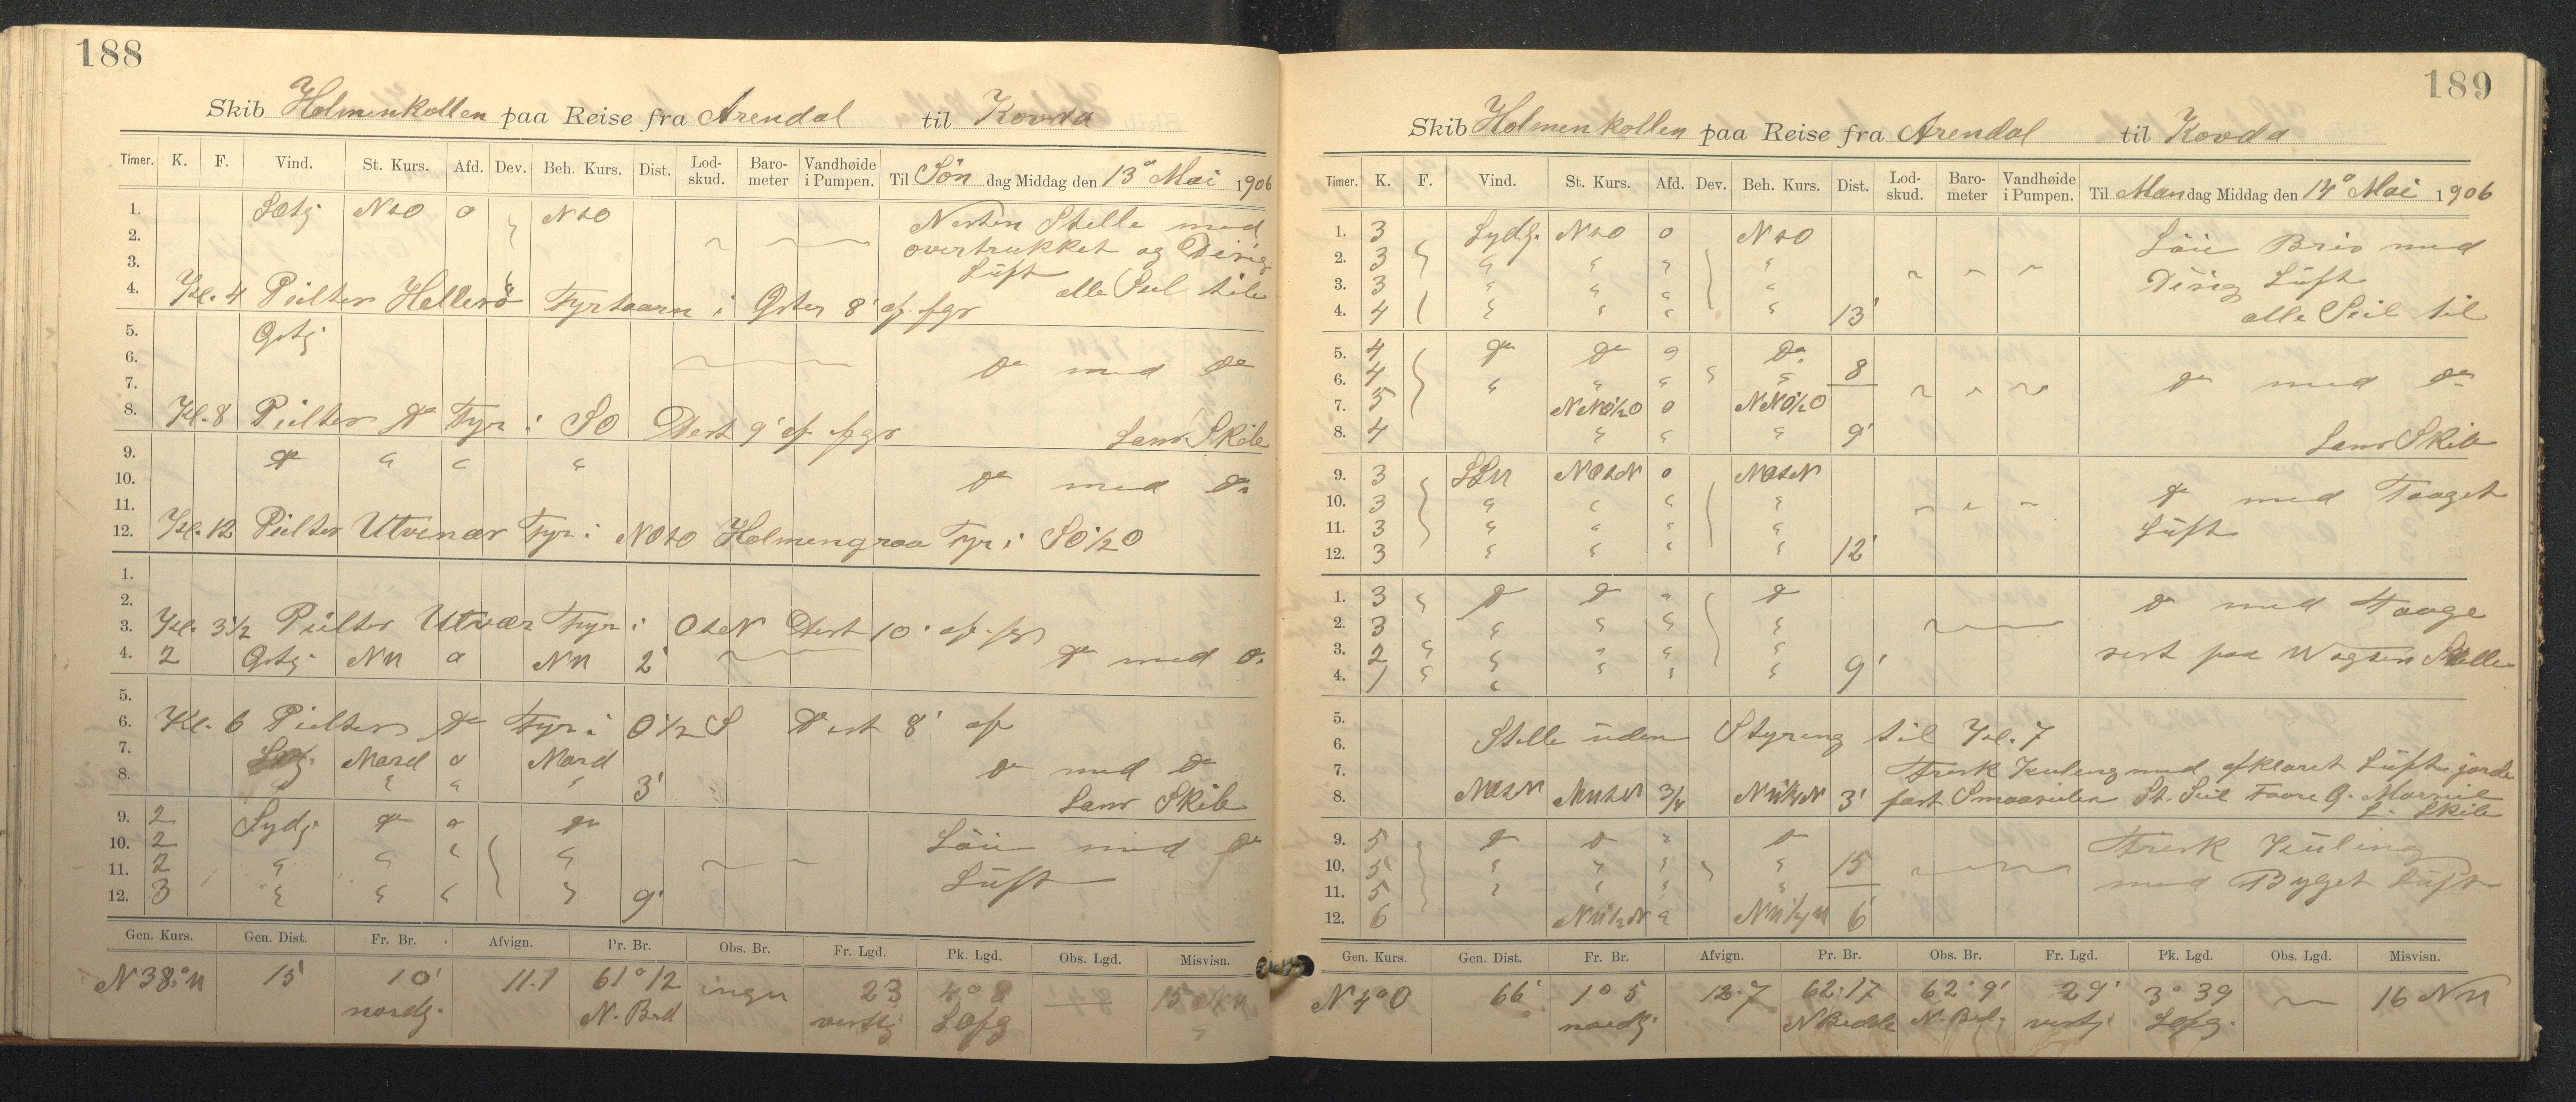 188
Skib Holmenkollen paa Reise fra Arendal til Kovda
Timer. K. F. Vind. St. Kurs. Afd. Dev. Beh. Kurs. Dist. Lod-skud. Baro-meter Vandhøide i Pumpen. Til Søn dag Middag den 13de Mai 1906
1. NtO 0 NtO Nesten Stille med
2. overtrukket og Disig
3. Luft
4. Kl. 4 Peiltes Hellesö Fyrtaarn i Oster 8' af. alle Seil til
5. Ostj
6. do med do
7.
8. Kl. 8 Peiltes do Fyr i SO Dist 9' af. Lans. Skib
9. do " " "
10. do med do
11.
12. Kl. 12 Peiltes Utvær Fyr i NOtO Holmengraa Fyr i SO½O
1.
2.
3. Kl. 3½ Peiltes Utvær Fyr i OtN Dist 10' af.
4. 2 Ostj. NW 0 NW 2' do med do
5.
6. Kl. 6 Peiltes do Fyr i O½S Dist 8' af
7. Nord 0 Nord do med do
8. " " " 3' Lans Skib
9. 2 Sydj. do 0 do
10. 2 " " " Löi med do
11. 2 " " " Luft
12. 3 " " " " 9'
Gen. Kurs. Gen. Dist. Fr. Br. Afvign. Pr. Br. Obs. Br. Fr. Lgd. Pk. Lgd. Obs. Lgd. Misvisn.
N 38° W 15 10' 11.1 61° 12 ingen 23 4° 8 — 15
nordg. N. Brd vestlg
189
Skib Holmenkollen paa Reise fra Arendal til Kovda
Timer. K. F. Vind. St. Kurs. Afd. Dev. Beh. Kurs. Dist. Lod-skud. Baro-meter Vandhøide i Pumpen. Til Man dag Middag den 14de Mai 1906
1. 3 Sydlg. NtO 0 NtO Löi Bris med
2. 3 " " " " Disig Luft
3. 3 " " " "
4. 4 " " " " 13' alle Seil til
5. 4 do do " do
6. 4 " " " " 8 do med do
7. 5 NNO½O 0 NNO½O
8. 4 " " " 9' Lans Skib
9. 3 SSW NOtN 0 NOtN
10. 3 " " " " do med Taaget
11. 3 " " " " Luft
12. 3 " " " " 12'
1. 3 do do " do do med Taage
2. 3 " " " "
3. 2 " " " "
4. 1 " " " " 9'
5.
6. Stille uden Styring til Kl. 7
7. Frisk Kuling med afklaret Luft gjorde
8. NOtN 3/4 3' fast Smaaseilen St. Seil L. Skib
9. 5 do do " do Frisk Kuling
10. 5 " " " " 15 med Byget Luft
11. 5 " " " "
12. 6 6'
Gen. Kurs. Gen. Dist. Fr. Br. Afvign. Pr. Br. Obs. Br. Fr. Lgd. Pk. Lgd. Obs. Lgd. Misvisn.
N 4° O 66' 1° 5 12.7 62.17 62° 9' 29' 3° 39 — 16 NW
nordlg. N Bredde N. Brd. vestj.